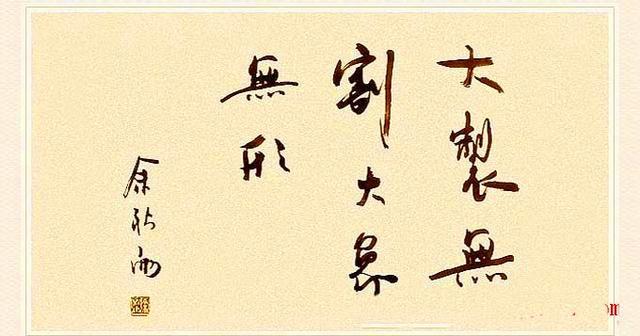 大製無
割大象
無形
余秋雨